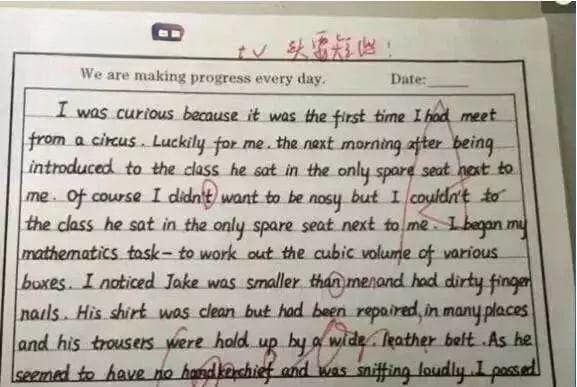 t、v 头要短些！
We are making progress every day. Date:
I was curious because it was the first time I had meet
from a circus. Luckily for me. the next morning after being
introduced to the class he sat in the only spare seat next to
me. Of course I didn't want to be nosy but I couldn't to
the class he sat in the only spare seat next to me. I began my
mathematics task - to work out the cubic volume of various
boxes. I noticed Jake was smaller than me and had dirty finger
nails. His shirt was clean but had been repaired, in many places
and his trousers were hold up by a wide, leather belt. As he
seemed to have no handkerchief and was sniffing loudly. I passed